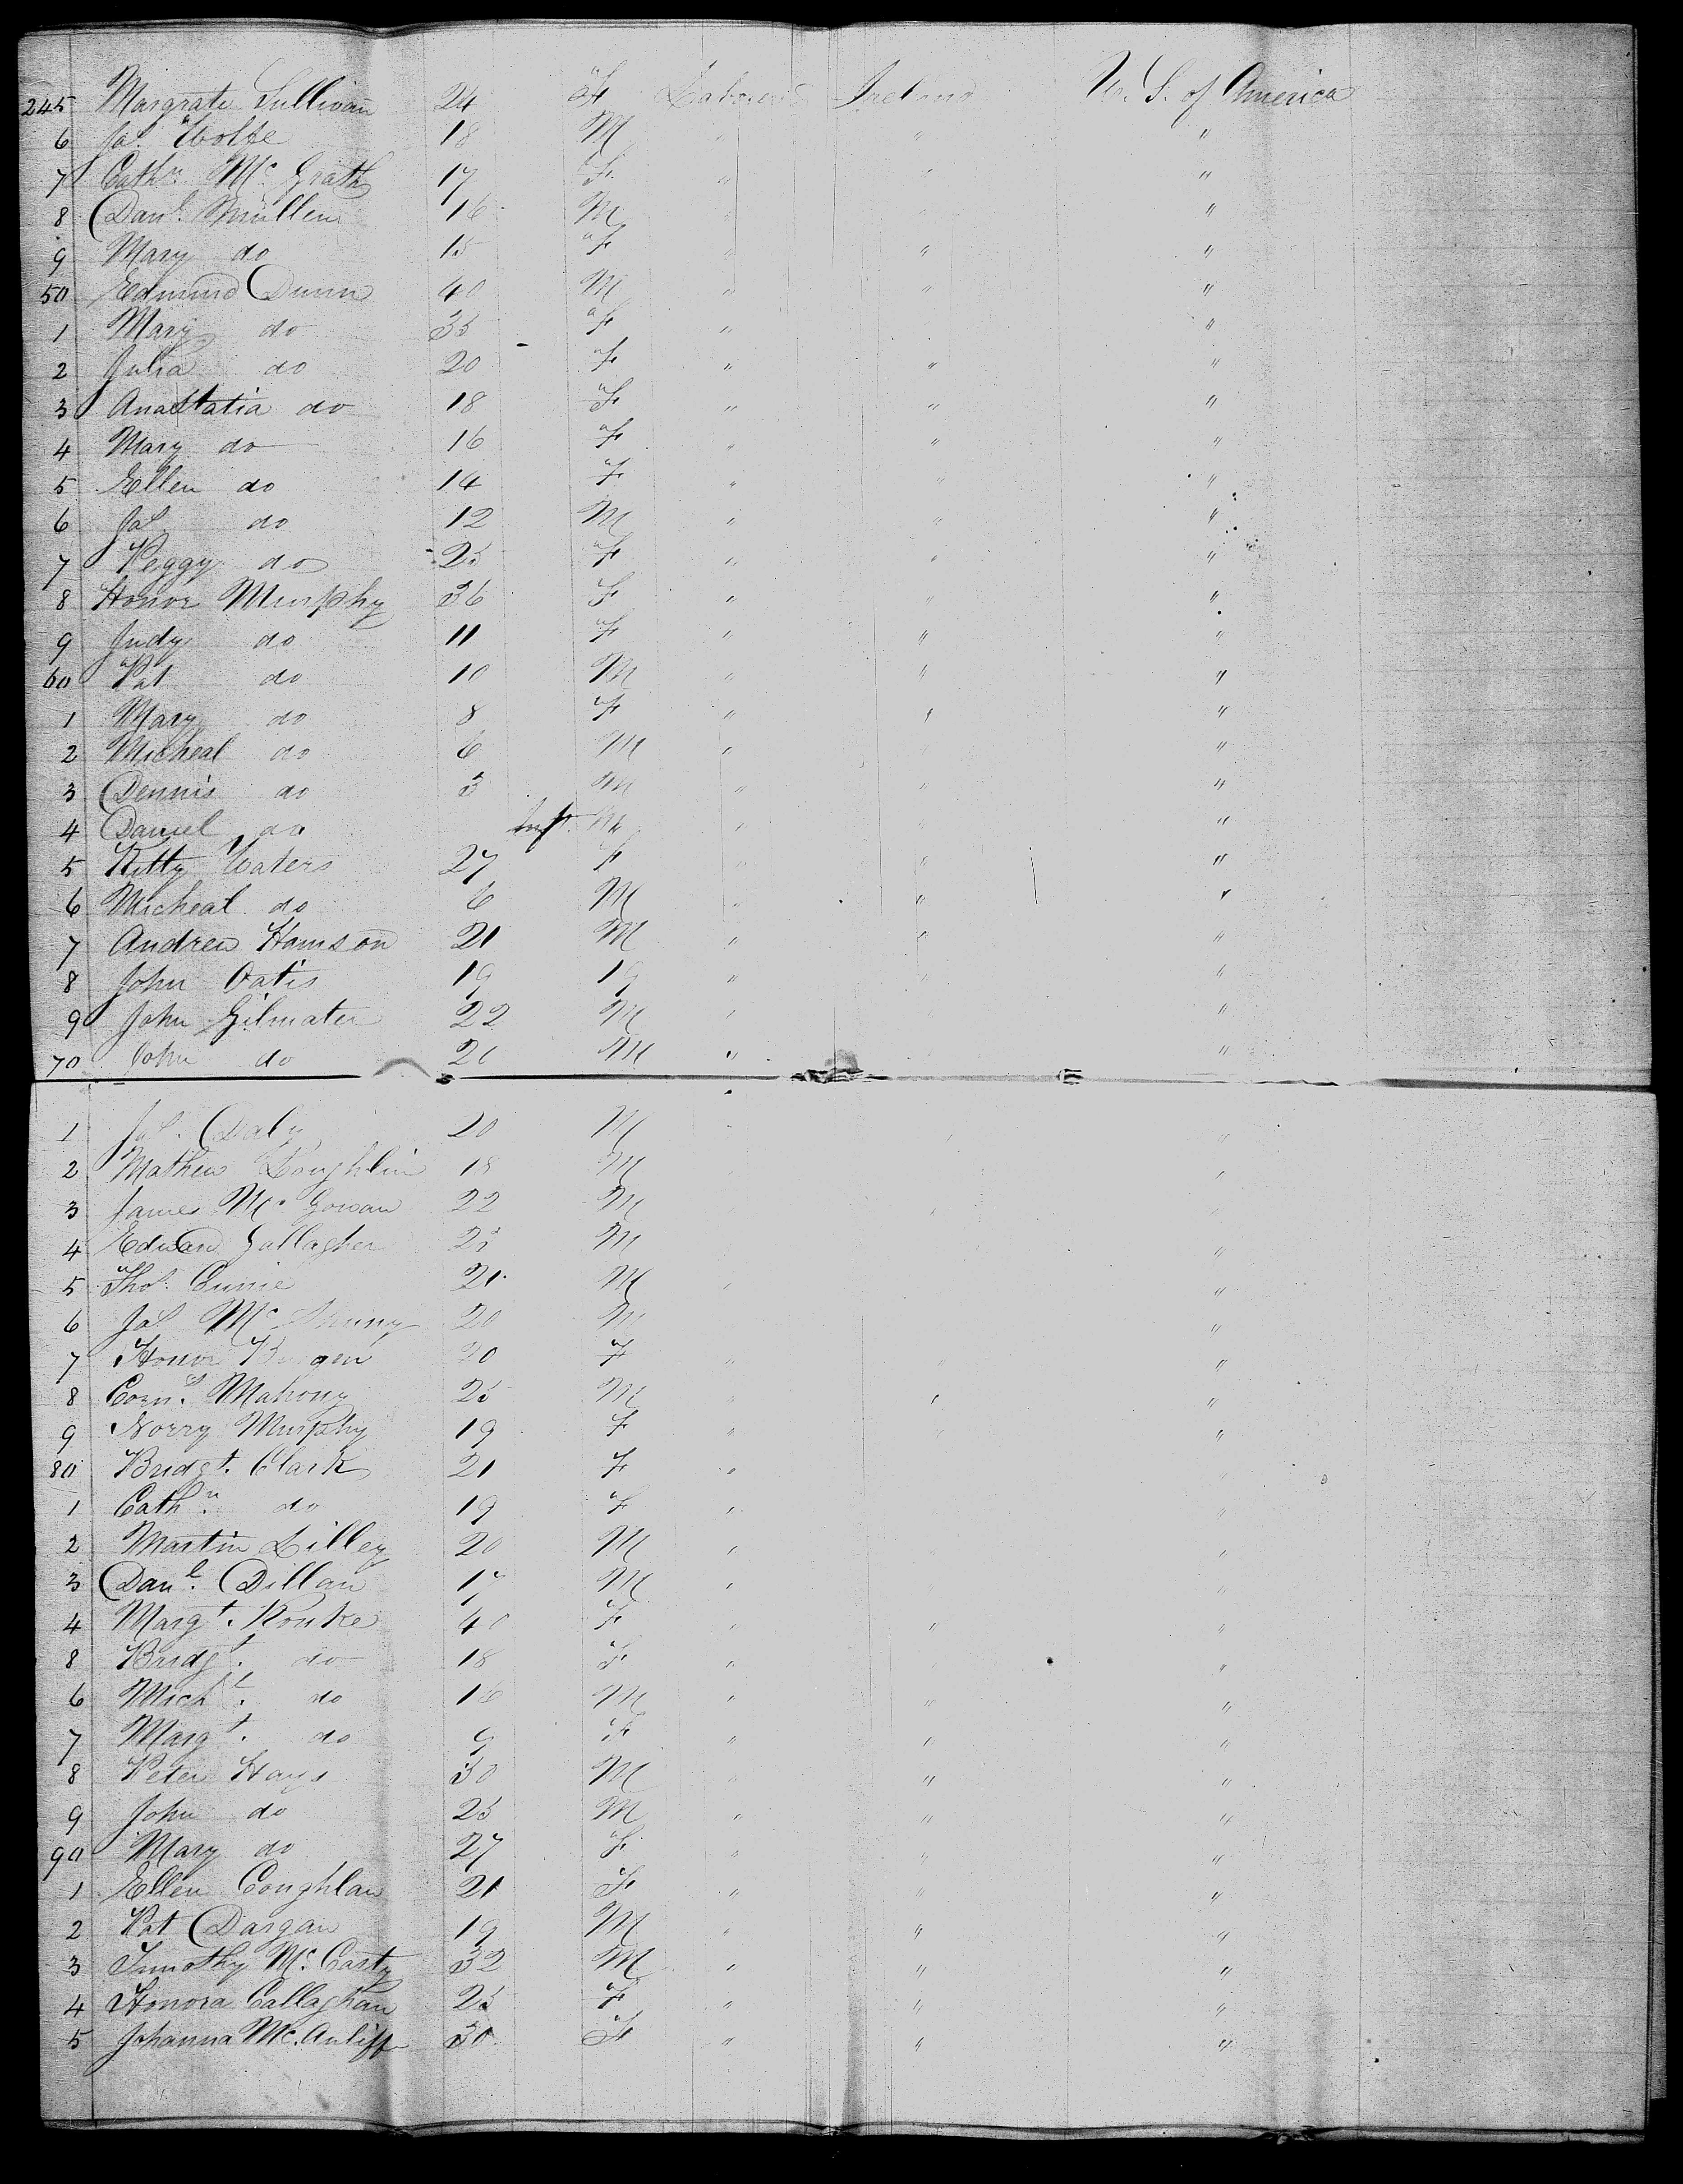 245 Margrate Sullivan 24 F Laborer Ireland U. S. of America
6 Jas. Wolfe 18 M " " "
7 Cathn. Mc. Grath 17 F " " "
8 Danl. Mullen 16 M "
9 Mary do 15 F " " "
50 Edmund Dunn 40 M " " "
1 Mary do 35 F " "
2 Julia do 20 F " " "
3 Anastatia do 18 F " " "
4 Mary do 16 F " " "
5 Ellen do 14 F " " "
6 Jas. do 12 M " " "
7 Peggy do 25 F " " "
8 Honor Murphy 36 F " " "
9 Judy do 11 F " " "
60 Pat do 10 M " " "
1 Mary do 8 F " " "
2 Micheal do 6 M " "
3 Dennis do 3 M " " "
4 Daniel do Inft. M " " "
5 Kitty Waters 27 F " " "
6 Micheal do 6 M " " "
7 Andrew 21 M " " "
8 John Oatis 19 19 " " "
9 John 22 M " "
70 John do M " "
1 Jas. Daly 20 M "
2 Mathew Loughlin 18 M "
3 James Mc. Gowan 22 M " "
4 Edward Gallagher 25 M "
5 Thos. 21 M "
6 Jas Mc 20 M "
7 Honor 20 F " " "
8 Corns. Mahony 25 M " "
9 Norry Murphy 19 F " " "
80 Bridgt. Clark 21 F "
1 Cathn. do 19 F " "
2 Martin Lilley 20 M " "
3 Danl. Dillan 17 M " "
4 Margt. Rourke 40 F " " "
8 Bridgt. do 18 F " "
6 Michl. do 16 M " " "
7 Margt. do 9 F " " "
8 Peter Hays 30 M " " "
9 John do 25 M " " "
90 Mary do 27 F " " "
1 Ellen Coughlan 21 F " " "
2 Pat Dargan 19 M " " "
3 Timothy Mc. Carty 32 M " " "
4 Honora Callaghan 25 F " " "
5 Johanna Mc. Auliff 30 F " " "